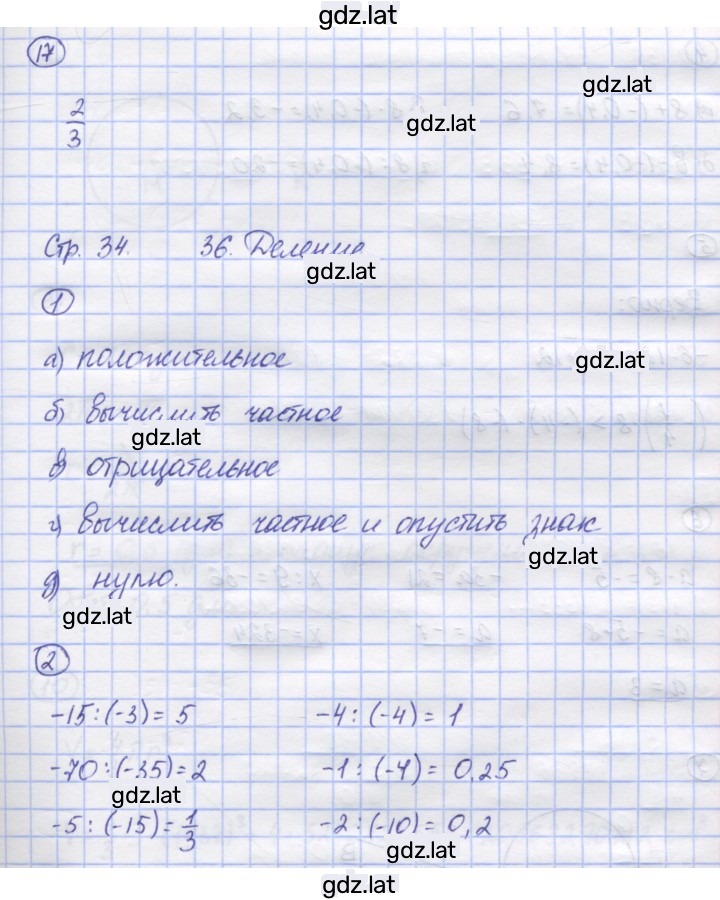 gdz.lat
17
gdz.lat
2/3
gdz.lat
Стр. 34. 36. Деление
gdz.lat
1
а) положительное
gdz.lat
б) вычислить частное
gdz.lat
в) отрицательное
г) вычислить частное и опустить знак
gdz.lat
д) нулю.
gdz.lat
2
-15 : (-3) = 5 -4 : (-4) = 1
-70 : (-35) = 2 -1 : (-4) = 0,25
gdz.lat
-5 : (-15) = 1/3 -2 : (-10) = 0,2
gdz.lat
gdz.lat